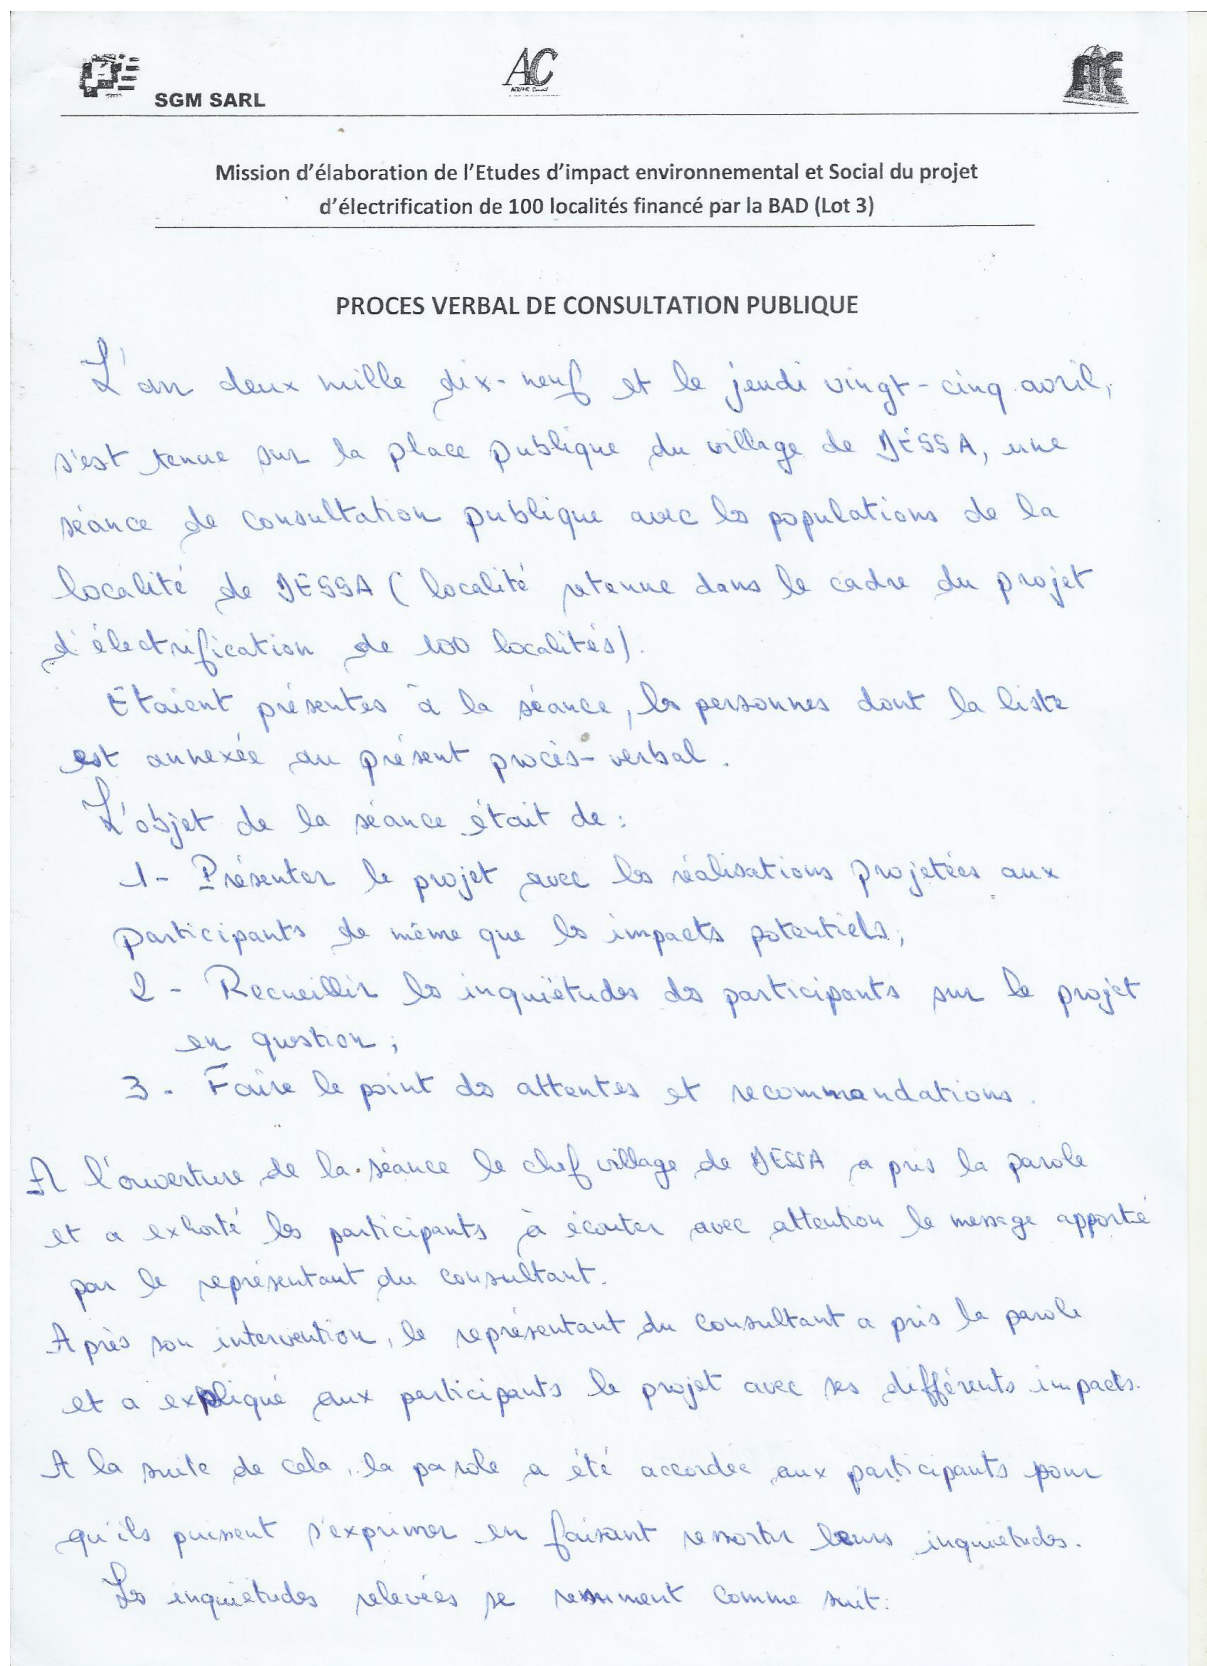 SGM SARL
AC
Mission d'élaboration de l'Etudes d'impact environnemental et Social du projet
d'électrification de 100 localités financé par la BAD (Lot 3)
PROCES VERBAL DE CONSULTATION PUBLIQUE
L'an deux mille dix-neuf et le jeudi vingt-cinq avril,
s'est tenue sur la place publique du village de DÉSSA, une
séance de consultation publique avec les populations de la
localité de DESSA (localité retenue dans le cadre du projet
d'électrification de 100 localités).
Etaient présentes à la séance, les personnes dont la liste
est annexée au présent procès-verbal.
L'objet de la séance était de :
1- Présenter le projet avec les réalisations projetées aux
participants de même que les impacts potentiels ;
2 - Recueillir les inquiétudes des participants sur le projet
en question ;
3 - Faire le point des attentes et recommandations.
A l'ouverture de la séance le chef village de DESSA a pris la parole
et a exhorté les participants à écouter avec attention le message apporté
par le représentant du consultant.
Après son intervention, le représentant du consultant a pris la parole
et a expliqué aux participants le projet avec ses différents impacts.
A la suite de cela, la parole a été accordée aux participants pour
qu'ils puissent s'exprimer en faisant ressortir leurs inquiétudes.
Les inquiétudes relevées se resument comme suit :